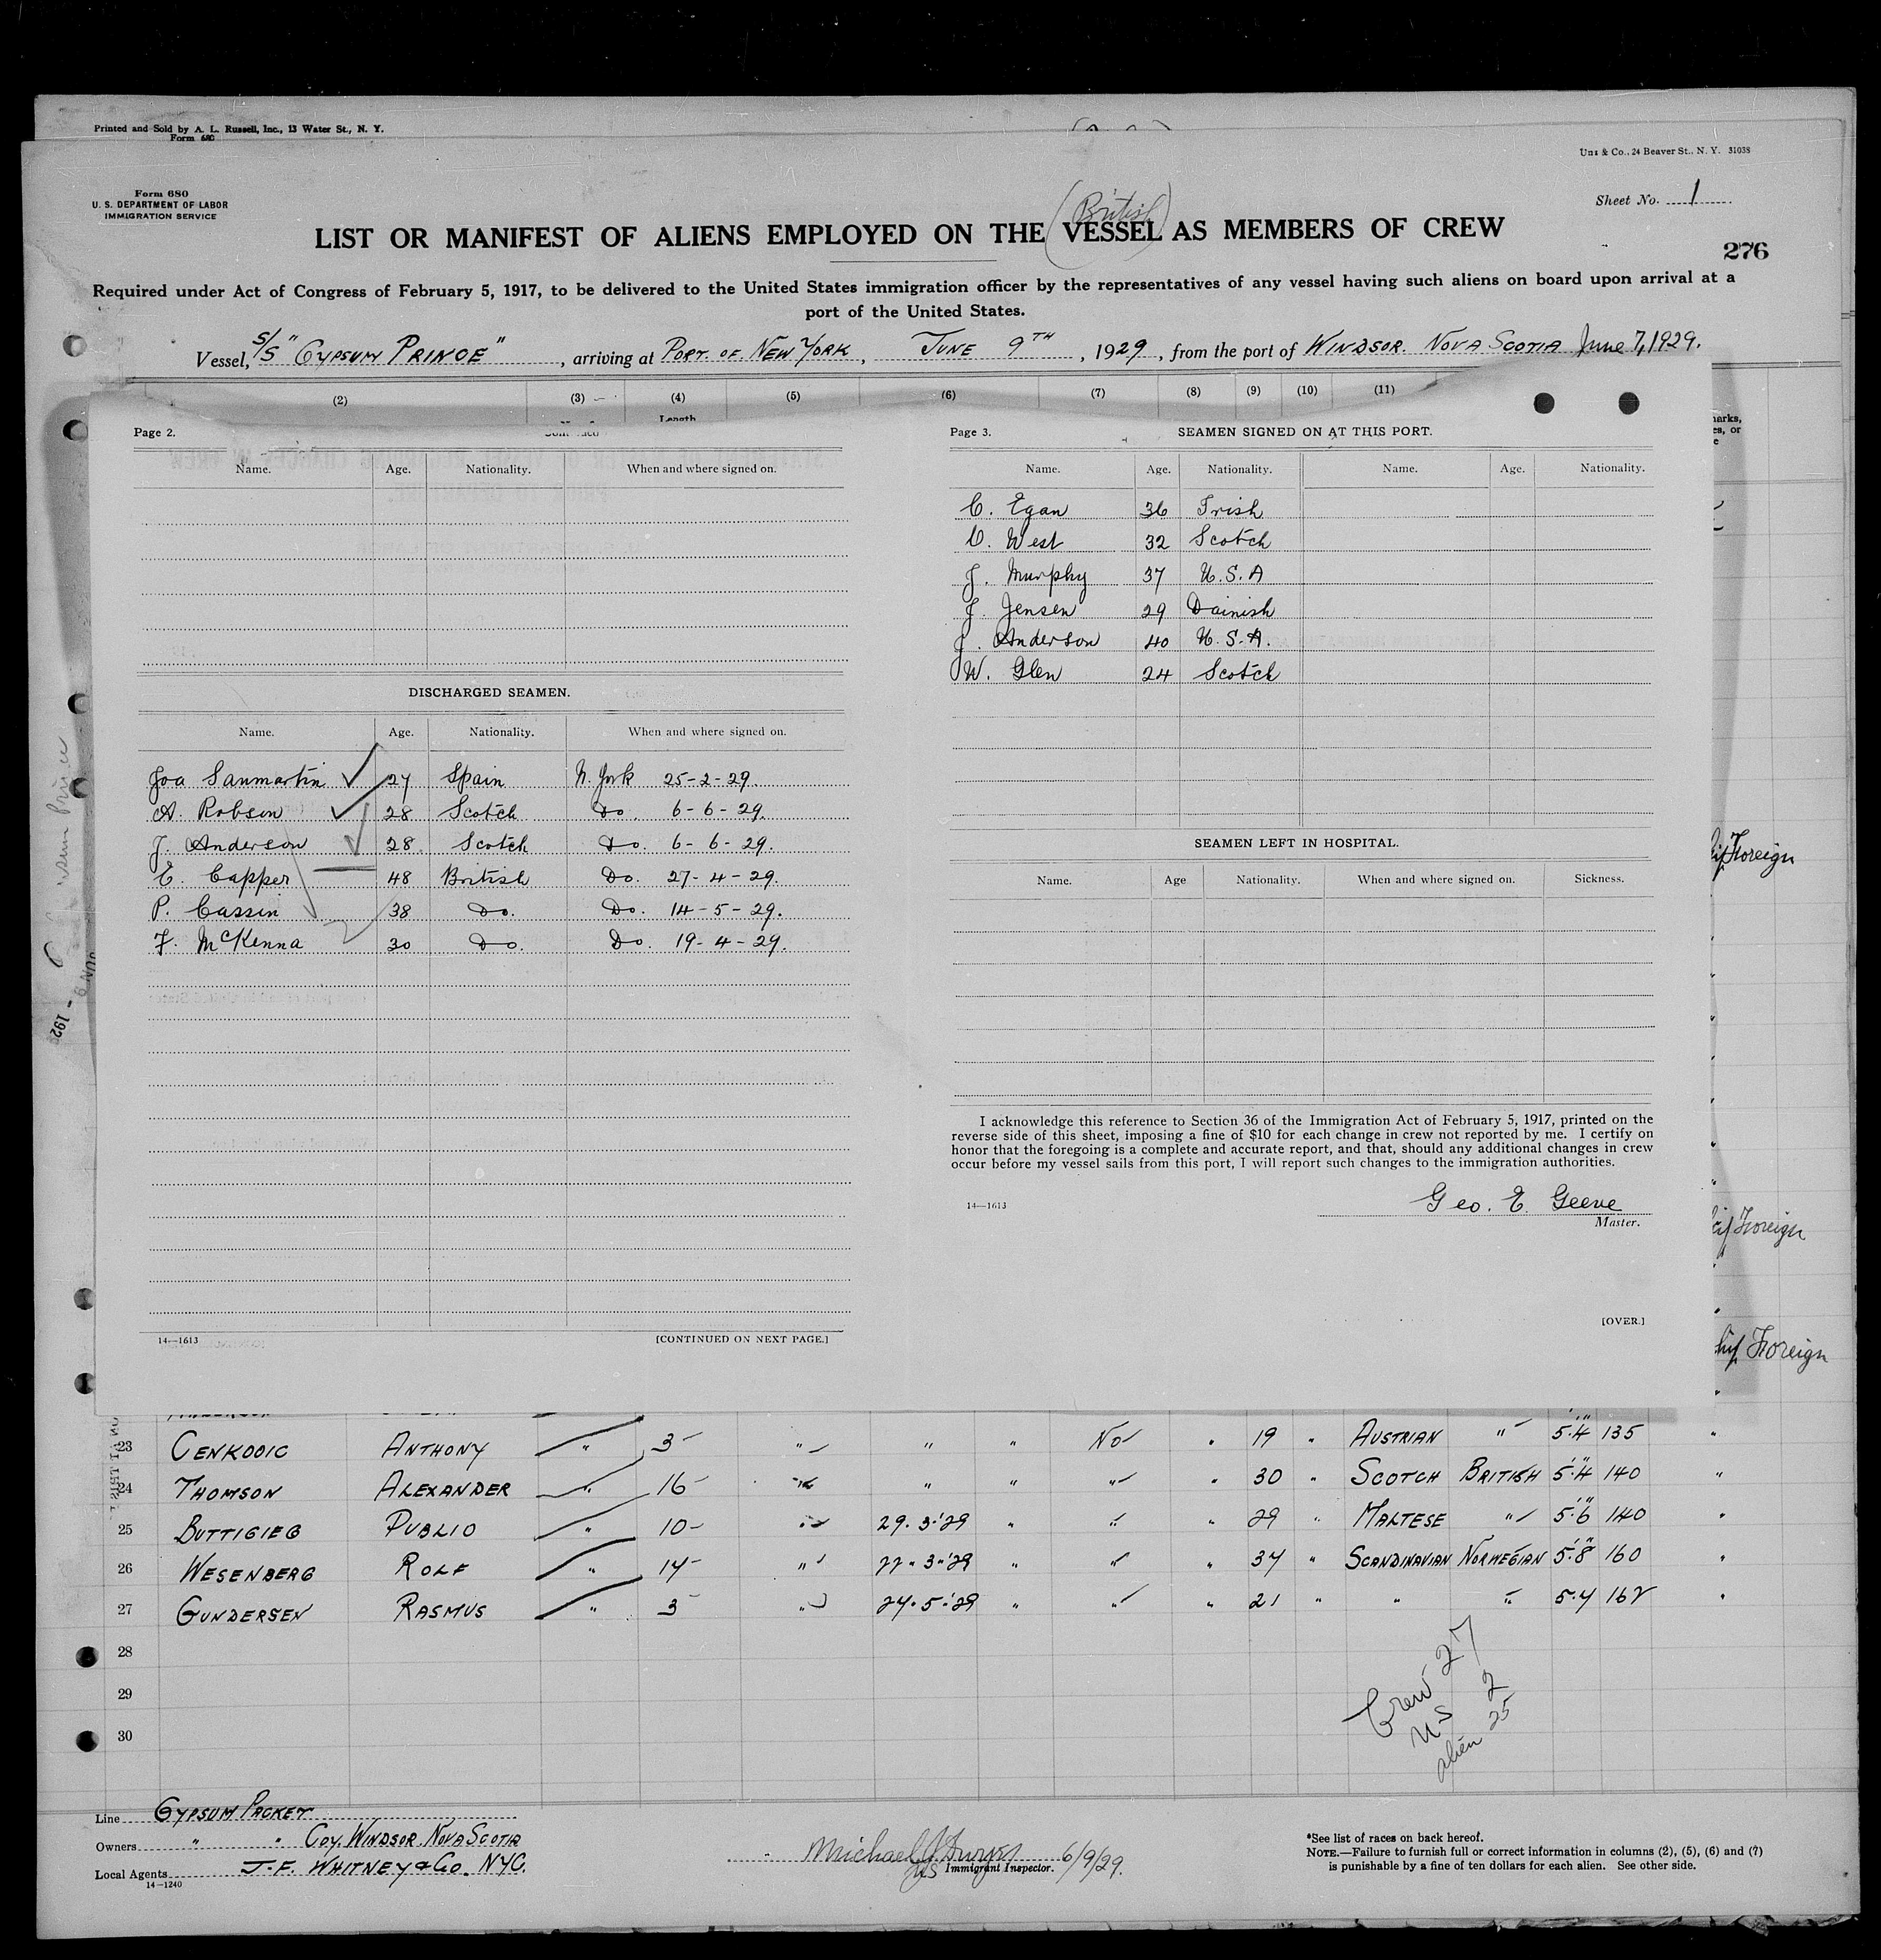 Printed and Sold by A. L. Russell, Inc., 13 Water St., N. Y.
Form 680
Uns & Co., 24 Beaver St., N. Y. 31038
Form 680
U. S. DEPARTMENT OF LABOR
IMMIGRATION SERVICE
Sheet No. 1
(British)
LIST OR MANIFEST OF ALIENS EMPLOYED ON THE VESSEL AS MEMBERS OF CREW
276
Required under Act of Congress of February 5, 1917, to be delivered to the United States immigration officer by the representatives of any vessel having such aliens on board upon arrival at a
port of the United States.
Vessel, S/S "GYPSUM PRINCE", arriving at PORT OF NEW YORK, JUNE 9TH, 1929, from the port of WINDSOR. NOVA SCOTIA June 7, 1929.
(2) (3) (4) (5) (6) (7) (8) (9) (10) (11)
Length
Page 2.
Name. Age. Nationality. When and where signed on.
DISCHARGED SEAMEN.
Name. Age. Nationality. When and where signed on.
Joa Sanmartin 27 Spain N. York 25-2-29.
A. Robson 28 Scotch Do. 6-6-29.
J. Anderson 28 Scotch Do. 6-6-29.
E. Capper 48 British Do. 27-4-29.
P. Cassin 38 Do. Do. 14-5-29.
F. McKenna 30 Do. Do. 19-4-29.
14—1613 [CONTINUED ON NEXT PAGE.]
Page 3. SEAMEN SIGNED ON AT THIS PORT.
Name. Age. Nationality. Name. Age. Nationality.
C. Egan 36 Irish
West 32 Scotch
J. Murphy 37 U.S.A
J. Jensen 29 Dainish
J. Anderson 40 U.S.A.
W. Glen 24 Scotch
SEAMEN LEFT IN HOSPITAL.
Name. Age Nationality. When and where signed on. Sickness.
I acknowledge this reference to Section 36 of the Immigration Act of February 5, 1917, printed on the
reverse side of this sheet, imposing a fine of $10 for each change in crew not reported by me. I certify on
honor that the foregoing is a complete and accurate report, and that, should any additional changes in crew
occur before my vessel sails from this port, I will report such changes to the immigration authorities.
14—1613
Geo. E. Geeve
Master.
[OVER.]
Foreign
Foreign
Foreign
23 CENKODIC ANTHONY " 3 " " " No " 19 " AUSTRIAN " 5'.4" 135 "
24 THOMSON ALEXANDER " 16 " " " " " 30 " SCOTCH BRITISH 5'.4" 140 "
25 BUTTIGIEG PUBLIO " 10 " 29.3.'29 " " " 29 " MALTESE " 5'.6" 140 "
26 WESENBERG ROLF " 14 " 22.3.'29 " " " 34 " SCANDINAVIAN NORWEGIAN 5'.8" 160 "
27 GUNDERSEN RASMUS " 3 " 24.5.'29 " " " 21 " " " 5.4 162 "
28
29
30
Crew 27
US 2
alien 25
Line GYPSUM PACKET
Owners " " COY. WINDSOR. NOVA SCOTIA
Local Agents J.F. WHITNEY & CO. NYC.
14—1240
Michael J. Dwyer
US Immigrant Inspector. 6/9/29.
*See list of races on back hereof.
NOTE.—Failure to furnish full or correct information in columns (2), (5), (6) and (7)
is punishable by a fine of ten dollars for each alien. See other side.